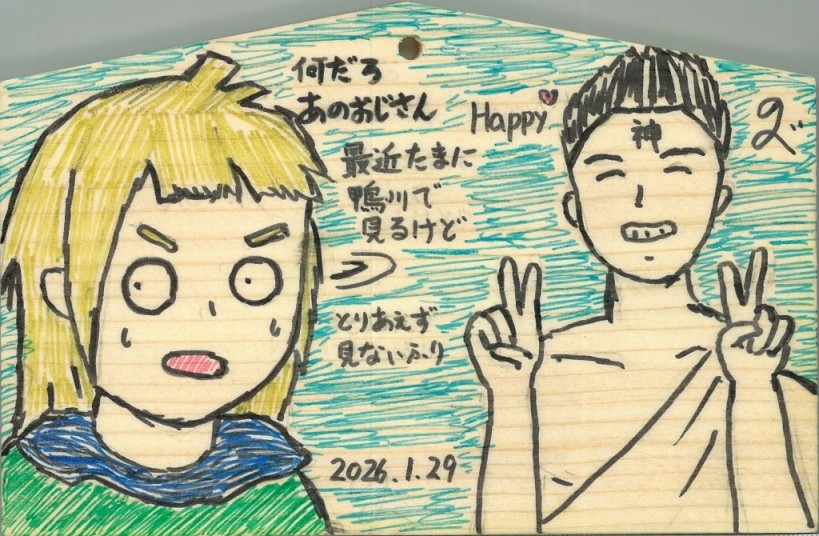 何だろ
あのおじさん
最近たまに
鴨川で
見るけど
とりあえず
見ないふり
2026.1.29
Happy
神